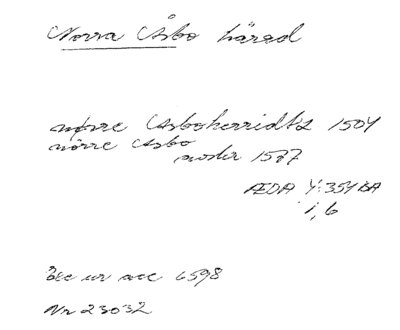 Norra Åsbo härad
nørre Asboherridtz 1504
nörre Asbo
under 1587
ÆDA Y:354 BA
1,6
Bec ur acc 6598
Nr 23032